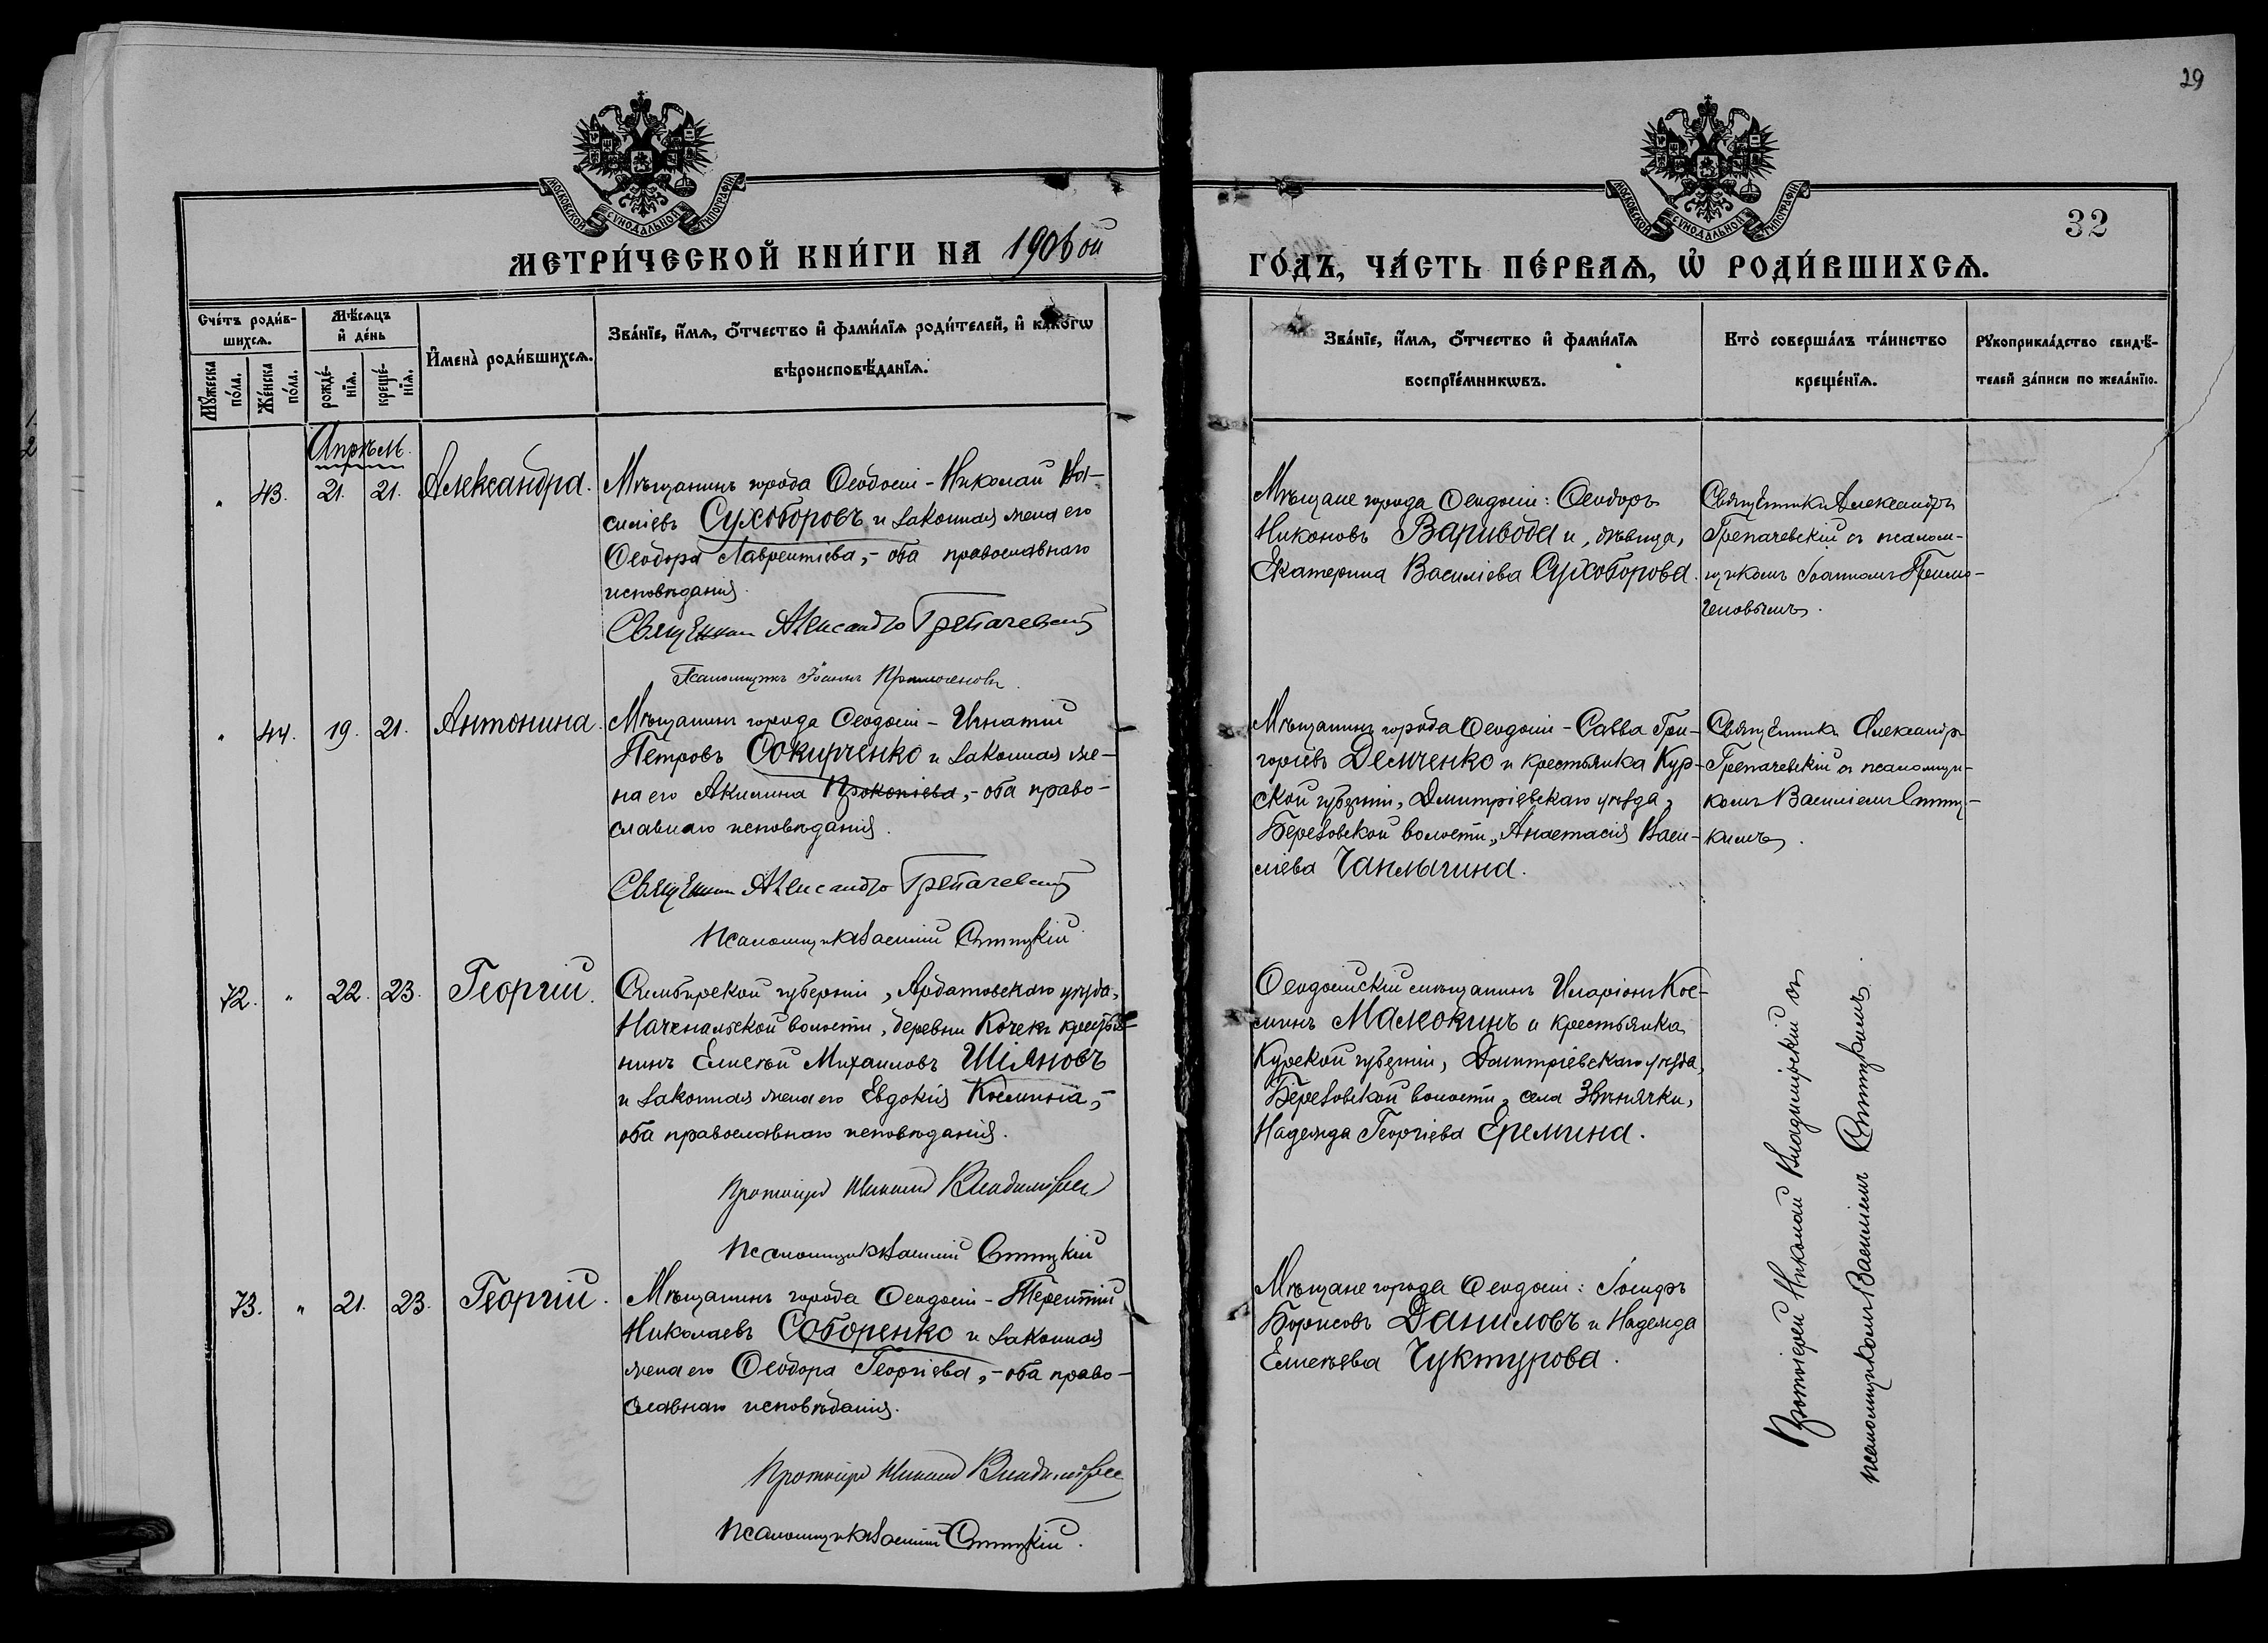 29
МОСКОВСКОЙ СУНОДАЛЬНОЙ ТИПОГРАФІИ
МОСКОВСКОЙ СУНОДАЛЬНОЙ ТИПОГРАФІИ
32
МЕТРИ́ЧЕСКОЙ КНИ́ГИ НА 1906 ой
ГО́ДЪ, ЧА́СТЬ ПЕ́РВАѦ, Ѡ҆ РОДИ́ВШИХСѦ.
Сче́тъ роди́в-
шихсѧ.
Мꙋ́жеска по́ла.
Же́нска по́ла.
Мѣ́сѧцъ
и҆ де́нь
рожде́-
нїѧ.
креще́-
нїѧ.
И҆мена̀ роди́вшихсѧ.
Зва́нїе, и҆́мѧ, ѻ҆́тчество и҆ фами́лїѧ роди́телей, и҆ како́гѡ
вѣроисповѣ́данїѧ.
Зва́нїе, и҆́мѧ, ѻ҆́тчество и҆ фами́лїѧ
воспрїе́мникѡвъ.
Кто̀ соверша́лъ та́инство
креще́нїѧ.
Рꙋкоприкла́дство свидѣ́-
телей за́писи по жела́нїю.
Апрѣль.
" 43. 21. 21. Александра.
Мѣщанинъ города Ѳеодосіи - Николай Ва-
силіевъ Сухоборовъ и законная жена его
Ѳеодора Лаврентіева, - оба православнаго
исповѣданія.
Священникъ Александръ Грепачевскій
Псаломщикъ Іоаннъ
Мѣщане города Ѳеодосіи: Ѳеодоръ
Никоновъ Варивода и, дѣвица,
Екатерина Василіева Сухоборова.
Священникъ Александръ
Грепачевскій съ псалом-
щикомъ Іоанномъ
" 44. 19. 21. Антонина.
Мѣщанинъ города Ѳеодосіи - Игнатій
Петровъ Сокирченко и законная же-
на его Акилина Прокопіева, - оба право-
славнаго исповѣданія.
Священникъ Александръ Грепачевскій
Псаломщикъ Василій
Мѣщанинъ города Ѳеодосіи - Савва Гри-
горіевъ Демченко и крестьянка Кур-
ской губерніи, Дмитріевскаго уѣзда,
Березовской волости, Анастасія Васи-
ліева Чаплыгина.
Священникъ Александръ
Грепачевскій съ псаломщи-
комъ Василіемъ
72. " 22. 23. Георгій.
Симбирской губерніи, Ардатовскаго уѣзда,
Наченальской волости, деревни Кочекъ крестья-
нинъ Елисей Михаиловъ Шіяновъ
и законная жена его Евдокія Космина, -
оба православнаго исповѣданія.
Протоіерей Николай Владимірскій
Псаломщикъ Василій
Ѳеодосійскій мѣщанинъ Иларіонъ Кос-
минъ Малюкинъ и крестьянка
Курской губерніи, Дмитріевскаго уѣзда,
Березовской волости, села Звѣнячки,
Надежда Георгіева Еремина.
Протоіерей Николай Владимірскій съ
псаломщикомъ Василіемъ
73. " 21. 23. Георгій.
Мѣщанинъ города Ѳеодосіи - Терентій
Николаевъ Соборенко и законная
жена его Ѳеодора Георгіева, - оба право-
славнаго исповѣданія.
Протоіерей Николай Владимірскій
Псаломщикъ Василій
Мѣщане города Ѳеодосіи: Іосифъ
Борисовъ Даниловъ и Надежда
Елисеева Чуктурова.